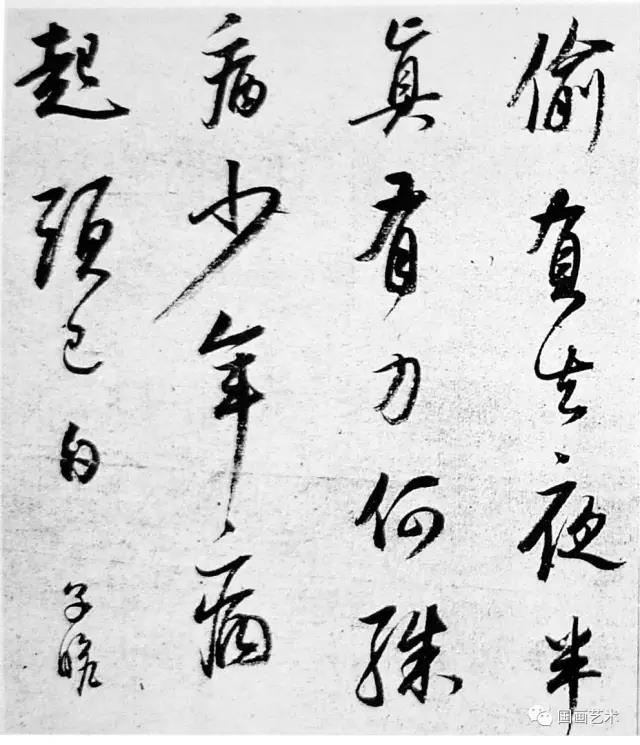 偷負去夜半
真有力何殊
病少年病
起頭已白
子瞻
国画艺术